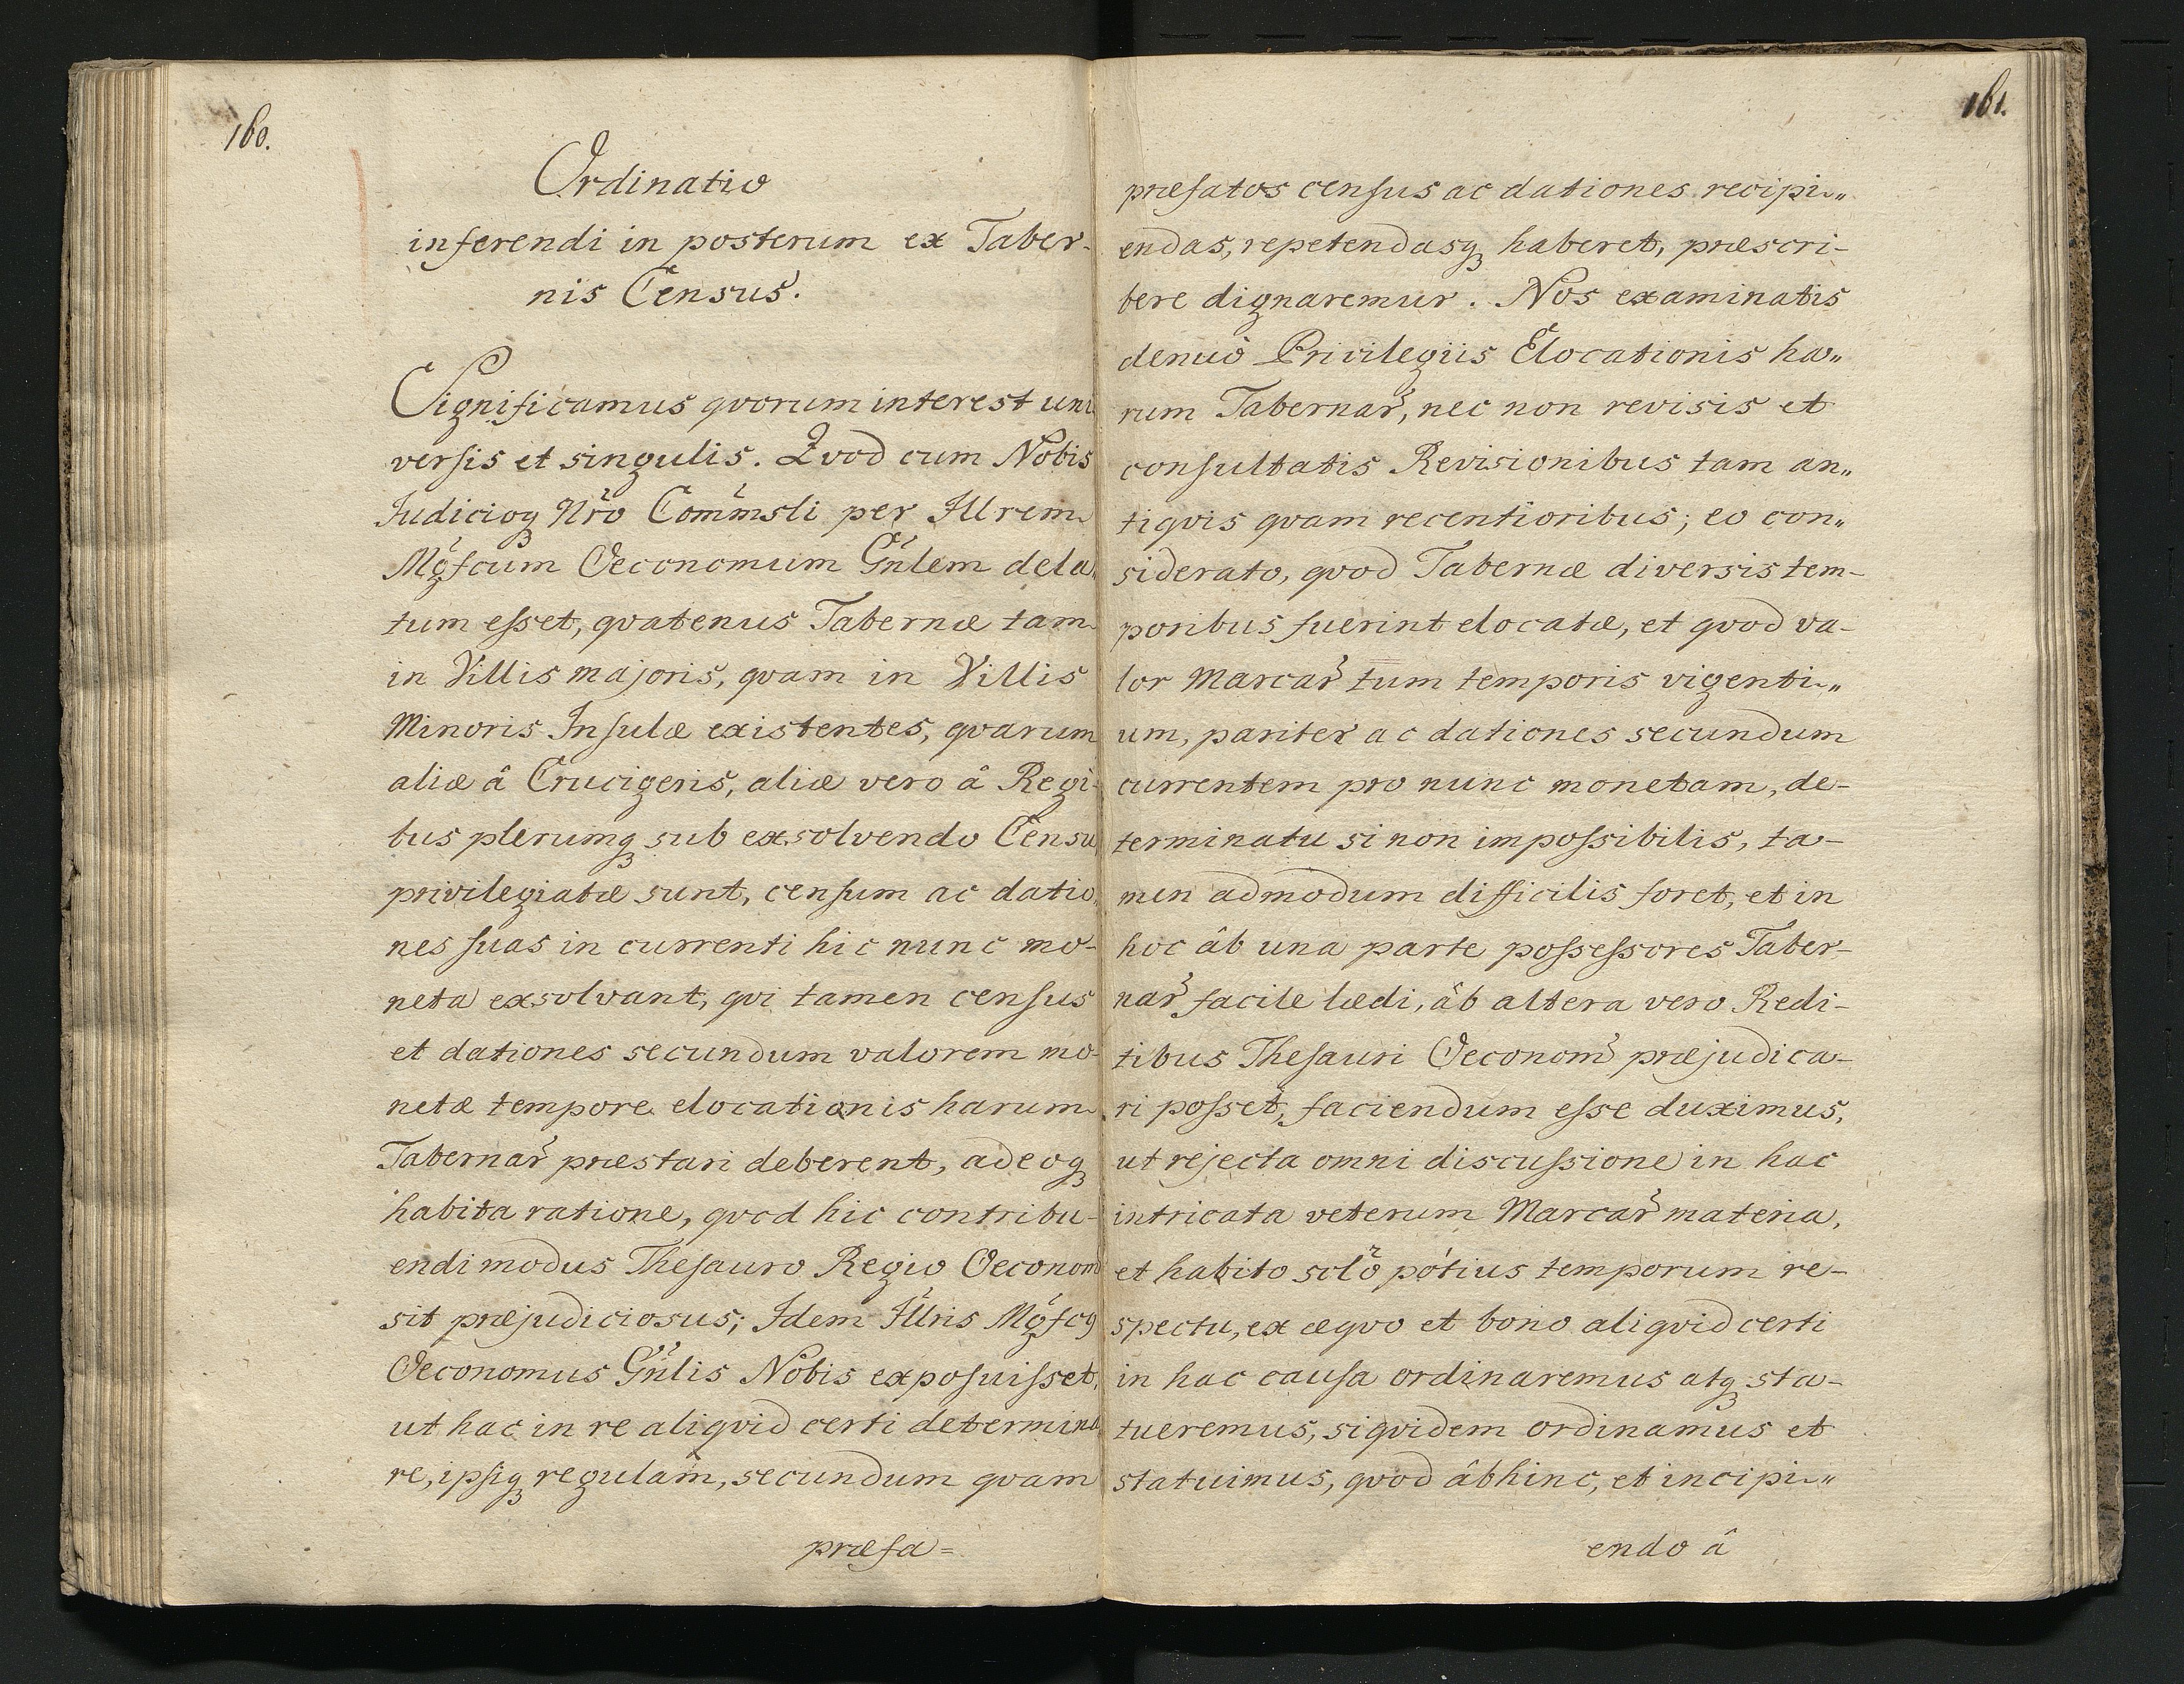 160.
Ordinatio
inferendi in posterum ex Taber-
nis Census.
Significamus qvorum interest uni
versis et singulis. Qvod cum Nobis
Judicioq₃ Nr̃o Com̃msli per Illrem
Mgfcum Oeconomum Gñlem dela„
tum esset, qvatenus Tabernæ tam
in Villis majoris, qvam in Villis
Minoris Insulæ existentes, qvarum
aliæ â Crucigeris, aliæ vero â Regi-
bus plerumq₃ sub exsolvendo Censu
privilegiatæ sunt, censum ac datio„
nes suas in currenti hic nunc mo-
neta exsolvant, qvi tamen census
et dationes secundum valorem mo-
netæ tempore elocationis harum
Tabernar̃ præstari deberent, adeoq₃
habita ratione, qvod hic contribu-
endi modus Thesauro Regio Oeconom̃
sit præjudiciosus; Idem Illris Mgfcq
Oeconomus Gñlis Nobis exposuisset,
ut hac in re aliqvid certi determina
re, ipsiq₃ regulam, secundum qvam
præfa=
161.
præfatos census ac dationes recipi„
endas, repetendasq₃ haberet, præscri-
bere dignaremur. Nos examinatis
denuò Privilegiis Elocationis ha„
rum Tabernar̃, nec non revisis et
consultatis Revisionibus tam an„
tiqvis qvam recentioribus; eo con„
siderato, qvod Tabernæ diversis tem-
poribus fuerint elocatæ, et qvod va-
lor Marcar̃ tum temporis vigenti„
um, pariter ac dationes secundum
currentem pro nunc monetam, de-
terminatu si non impossibilis, ta-
men admodum difficilis foret, et in
hoc âb una parte possessores Taber-
nar̃ facile lædi, âb altera vero Redi-
tibus Thesauri Oeconom̃ præjudica-
ri posset, faciendum esse duximus,
ut rejecta omni discussione in hac
intricata veterum Marcar̃ materia,
et habito solõ pótius temporum re-
spectu, ex æqvo et bono aliqvid certi
in hac causa ordinaremus atq₃ sta-
tueremus, siqvidem ordinamus et
statuimus, qvod âbhinc, et incipi„
endo â